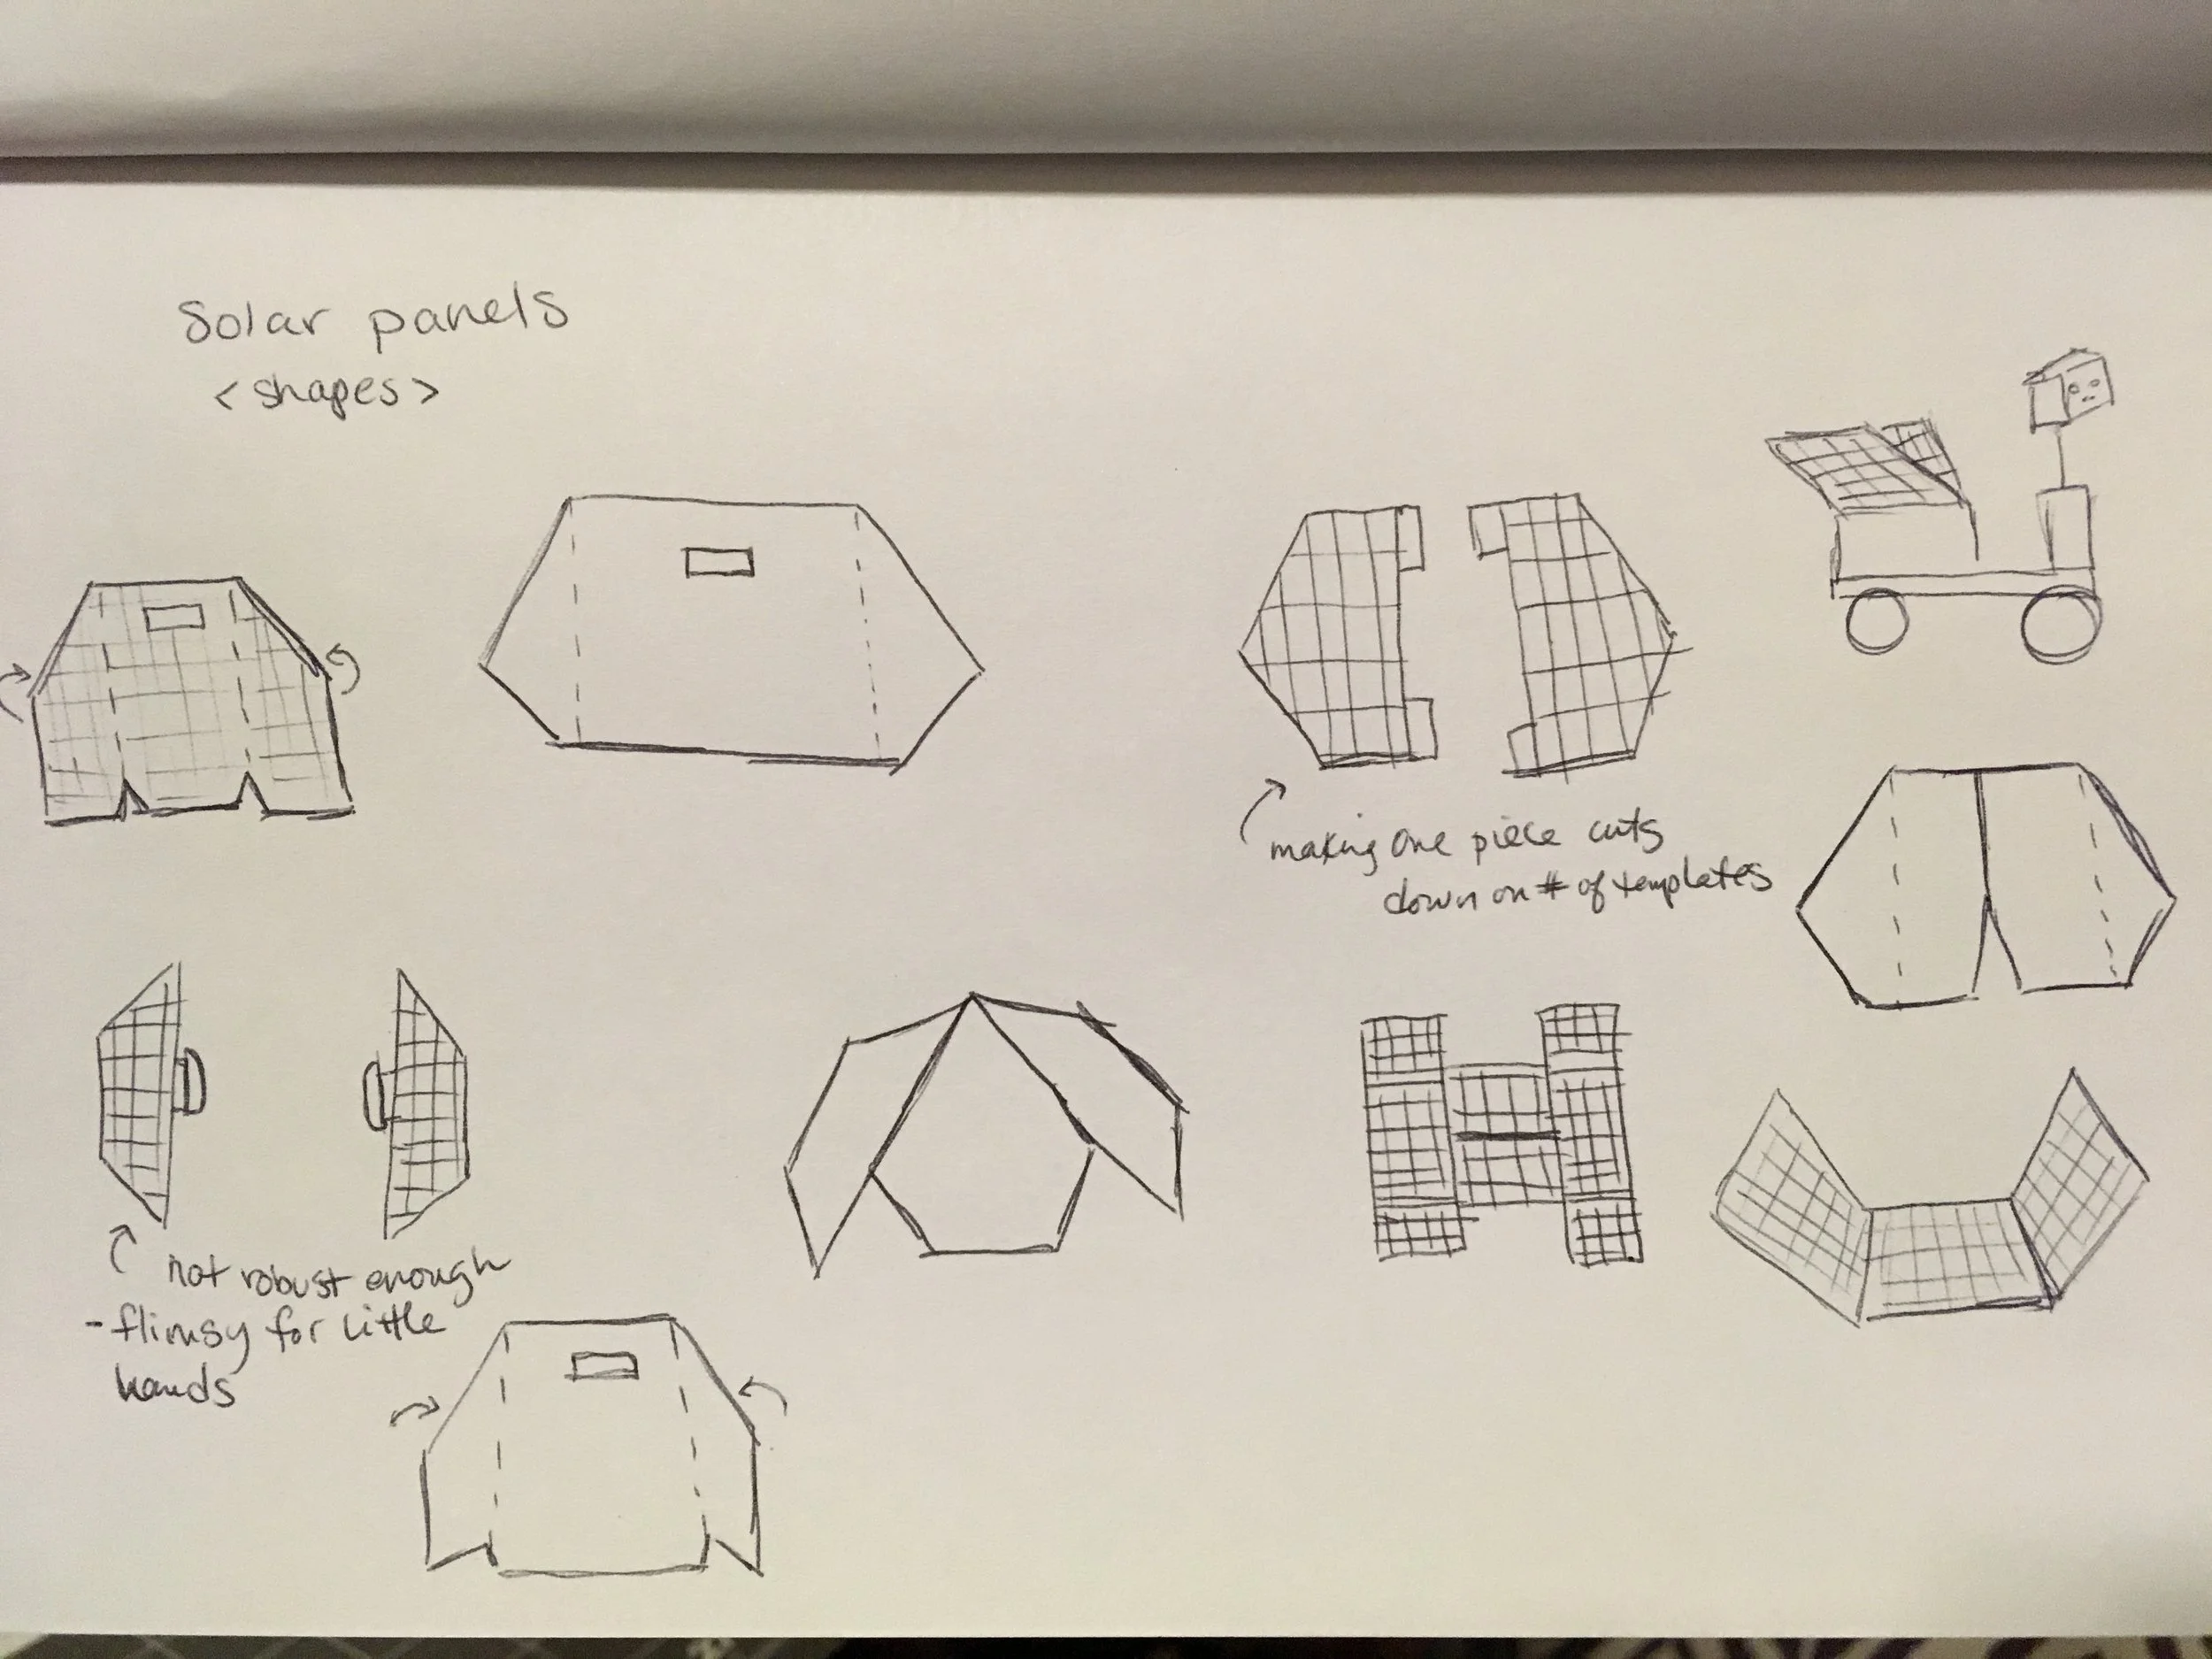 Solar panels
<shapes>
making one piece cuts
down on # of templates
not robust enough
- flimsy for little
hands